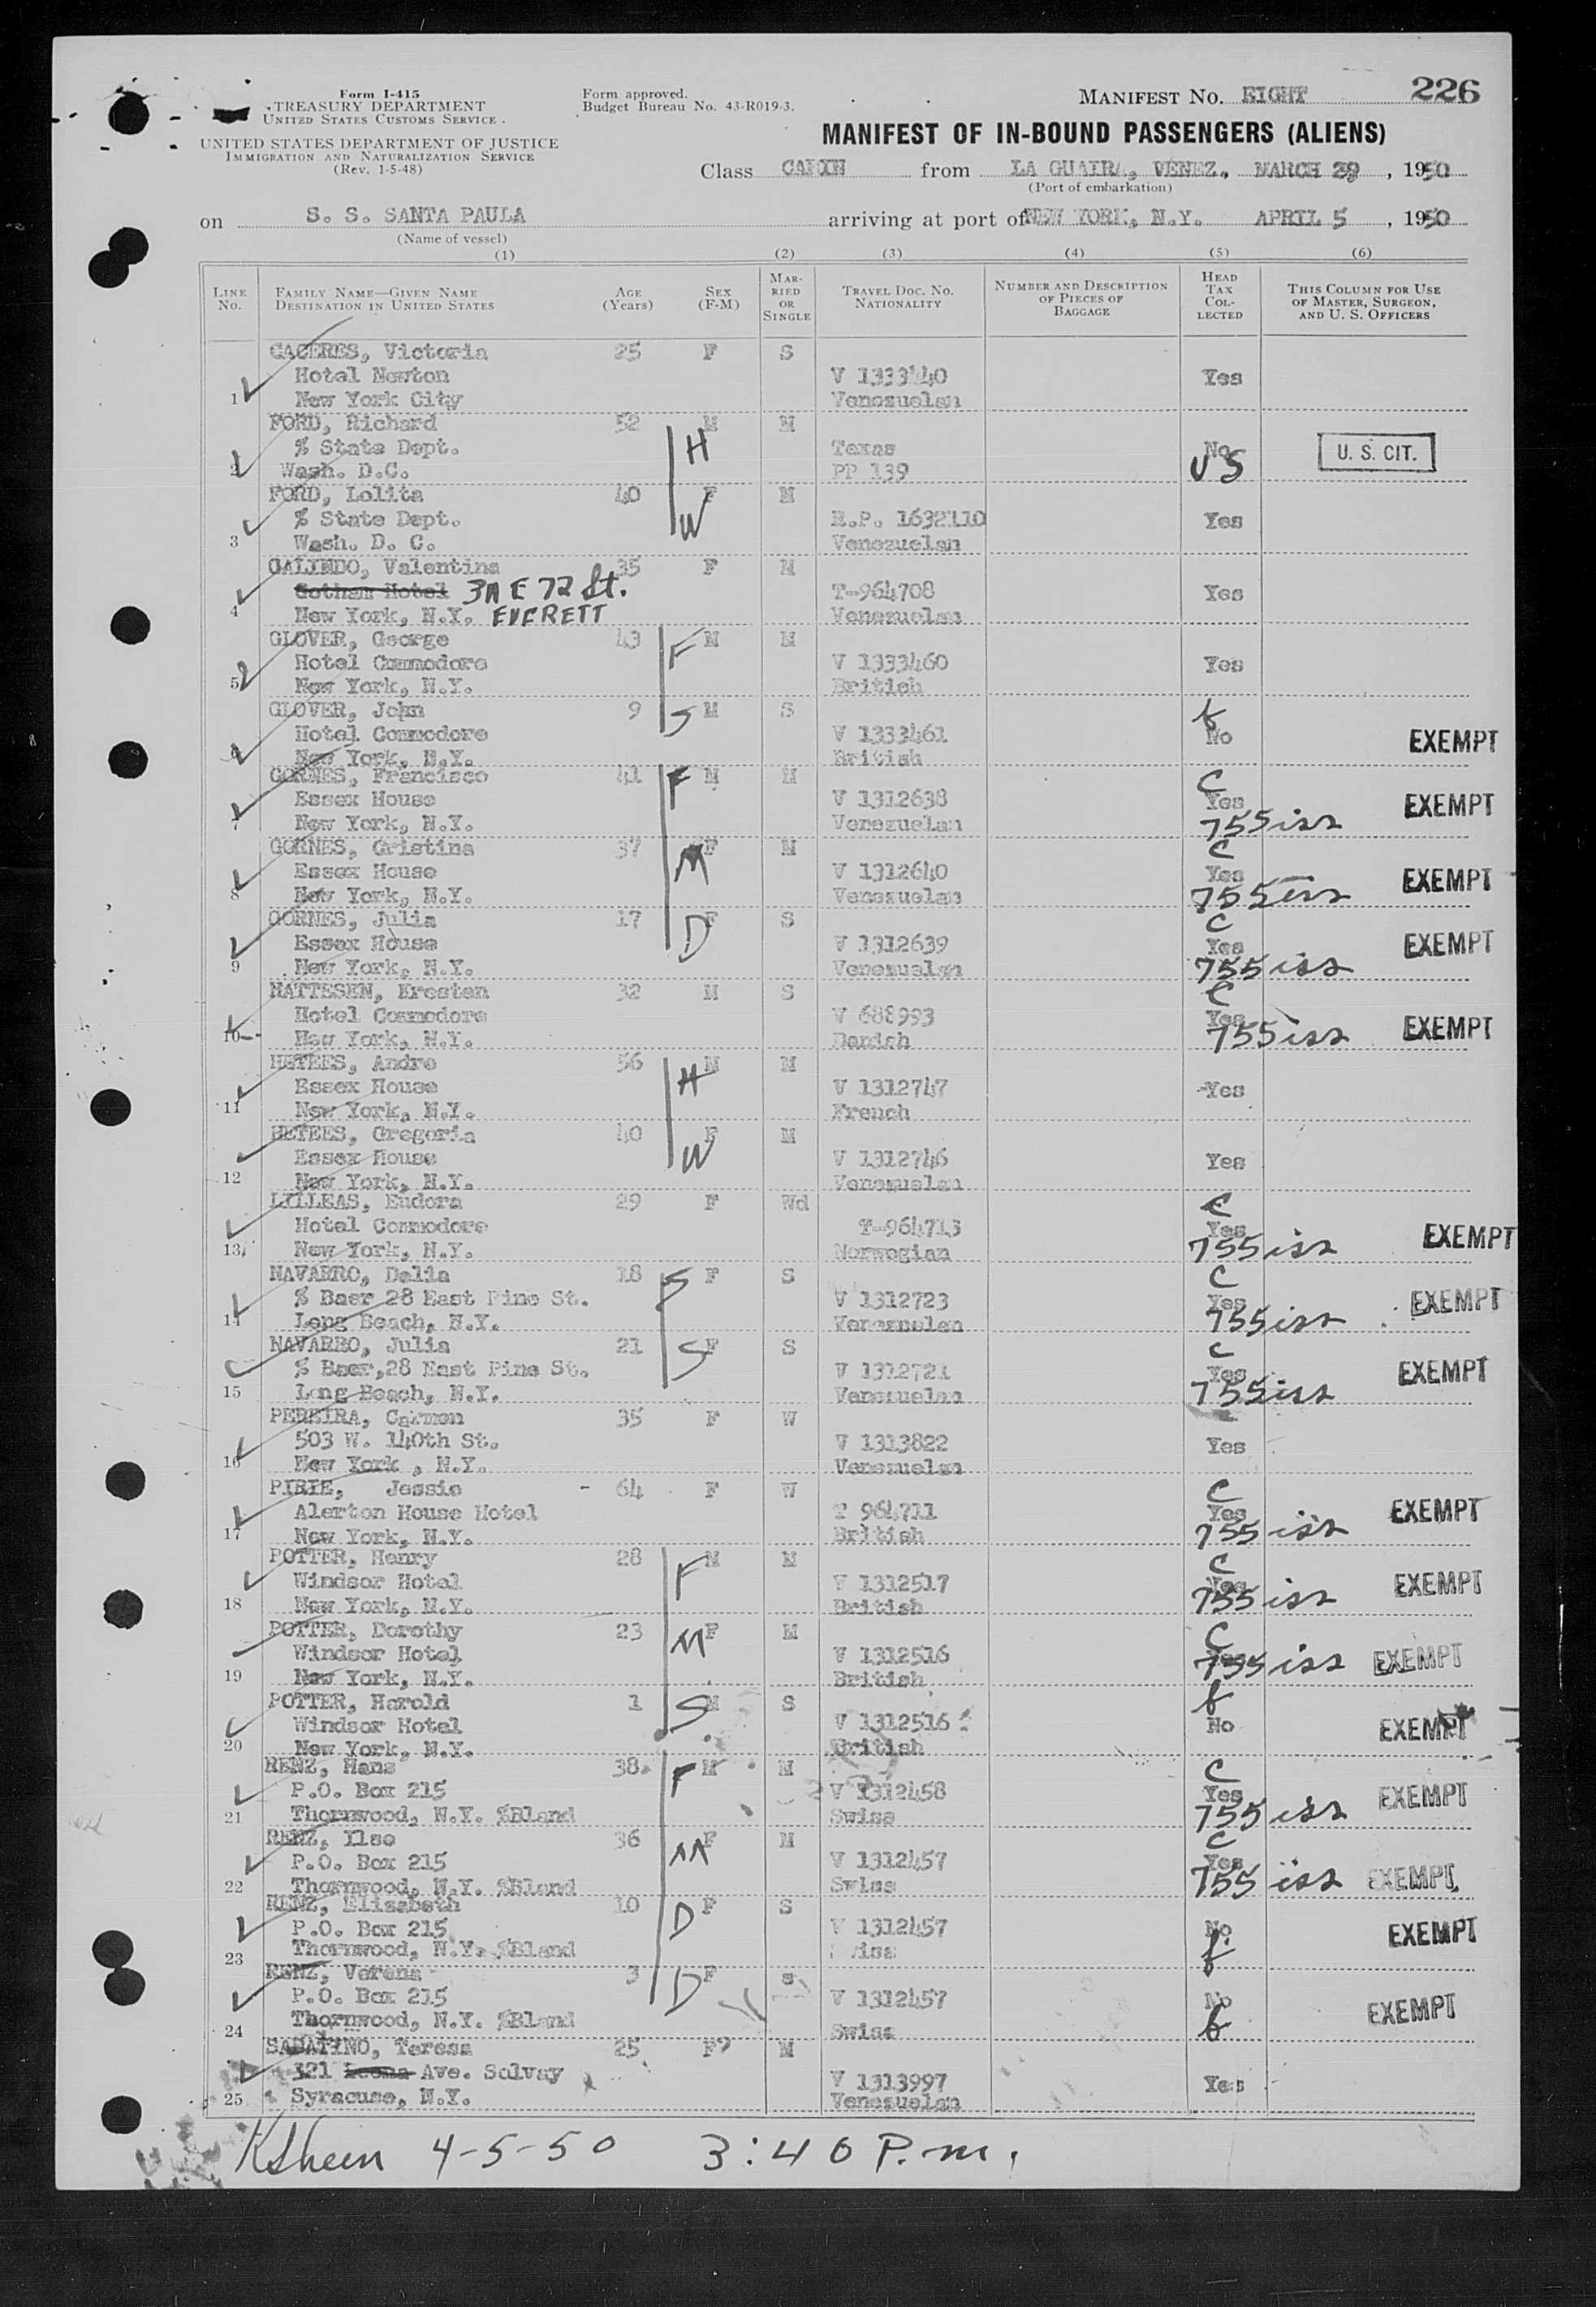 Form I-415
TREASURY DEPARTMENT
UNITED STATES CUSTOMS SERVICE
UNITED STATES DEPARTMENT OF JUSTICE
IMMIGRATION AND NATURALIZATION SERVICE
(Rev. 1-5-48)
Form approved.
Budget Bureau No. 43-R019-3.
MANIFEST No. EIGHT 226
MANIFEST OF IN-BOUND PASSENGERS (ALIENS)
Class CABIN from LA GUAIRA, VENEZ., MARCH 29, 1950
(Port of embarkation)
on S. S. SANTA PAULA arriving at port of NEW YORK, N.Y. APRIL 5, 1950
(Name of vessel)
(1) (2) (3) (4) (5) (6)
LINE No. FAMILY NAME—GIVEN NAME DESTINATION IN UNITED STATES AGE (Years) SEX (F-M) MARRIED OR SINGLE TRAVEL DOC. NO. NATIONALITY NUMBER AND DESCRIPTION OF PIECES OF BAGGAGE HEAD TAX COLLECTED THIS COLUMN FOR USE OF MASTER, SURGEON, AND U. S. OFFICERS
CACERES, Victoria 25 F S
Hotel Newton V 1333440 Yes
1 New York City Venezuelan
FORD, Richard 52 M M
% State Dept. H Texas No U. S. CIT.
2 Wash. D.C. PP 139 US
FORD, Lolita 40 F M
% State Dept. W R.P. 1632110 Yes
3 Wash. D. C. Venezuelan
GALINDO, Valentina 35 F M
Gotham Hotel 3A E 72 St. T-964708 Yes
4 New York, N.Y. EVERETT Venezuelan
GLOVER, George 43 F M M
Hotel Commodore V 1333460 Yes
5 New York, N.Y. British
GLOVER, John 9 S M S f
Hotel Commodore V 1333461 No EXEMPT
6 New York, N.Y. British
GORNES, Francisco 41 F M M C
Essex House V 1312638 Yes EXEMPT
7 New York, N.Y. Venezuelan 755 iss
GORNES, Cristina 37 M F M C
Essex House V 1312640 Yes EXEMPT
8 New York, N.Y. Venezuelan 755 iss
GORNES, Julia 17 D F S C
Essex House V 1312639 Yes EXEMPT
9 New York, N.Y. Venezuelan 755 iss
HATTESEN, Kresten 32 M S C
Hotel Commodore V 688993 Yes EXEMPT
10 New York, N.Y. Danish 755 iss
HETEES, Andre 56 H M M
Essex House V 1312747 Yes
11 New York, N.Y. French
HETEES, Gregoria 40 F M
Essex House W V 1312746 Yes
12 New York, N.Y. Venezuelan
LILLEAS, Eudora 29 F Wd C
Hotel Commodore T-964713 Yes EXEMPT
13 New York, N.Y. Norwegian 755 iss
NAVARRO, Delia 18 S F S C
% Baer 28 East Pine St. V 1312723 Yes EXEMPT
14 Long Beach, N.Y. Venezuelan 755 iss
NAVARRO, Julia 21 S F S C
% Baer, 28 East Pine St. V 1312721 Yes EXEMPT
15 Long Beach, N.Y. Venezuelan 755 iss
PEREIRA, Carmen 35 F W
503 W. 140th St. V 1313822 Yes
16 New York , N.Y. Venezuelan
PIRIE, Jessie - 64 F W C
Alerton House Hotel T 964711 Yes EXEMPT
17 New York, N.Y. British 755 iss
POTTER, Henry 28 F M M C
Windsor Hotel V 1312517 Yes EXEMPT
18 New York, N.Y. British 755 iss
POTTER, Dorothy 23 M F M C
Windsor Hotel V 1312516 EXEMPT
19 New York, N.Y. British 755 iss
POTTER, Harold 1 S M S f
Windsor Hotel V 1312516 No EXEMPT
20 New York, N.Y. British
RENZ, Hans 38 F M M C
P.O. Box 215 V 1312458 Yes EXEMPT
21 Thornwood, N.Y. %Bland Swiss 755 iss
RENZ, Ilse 36 M F M C
P.O. Box 215 V 1312457 Yes EXEMPT
22 Thornwood, N.Y. %Bland Swiss 755 iss
RENZ, Elizabeth 10 D F S
P.O. Box 215 V 1312457 No EXEMPT
23 Thornwood, N.Y. %Bland Swiss f
RENZ, Verena 3 D F s
P.O. Box 215 V 1312457 No EXEMPT
24 Thornwood, N.Y. %Bland Swiss f
SABATINO, Teresa 25 F M
321 Ave. Solvay V 1313997 Yes
25 Syracuse, N.Y. Venezuelan
4-5-50 3:40 P.m.